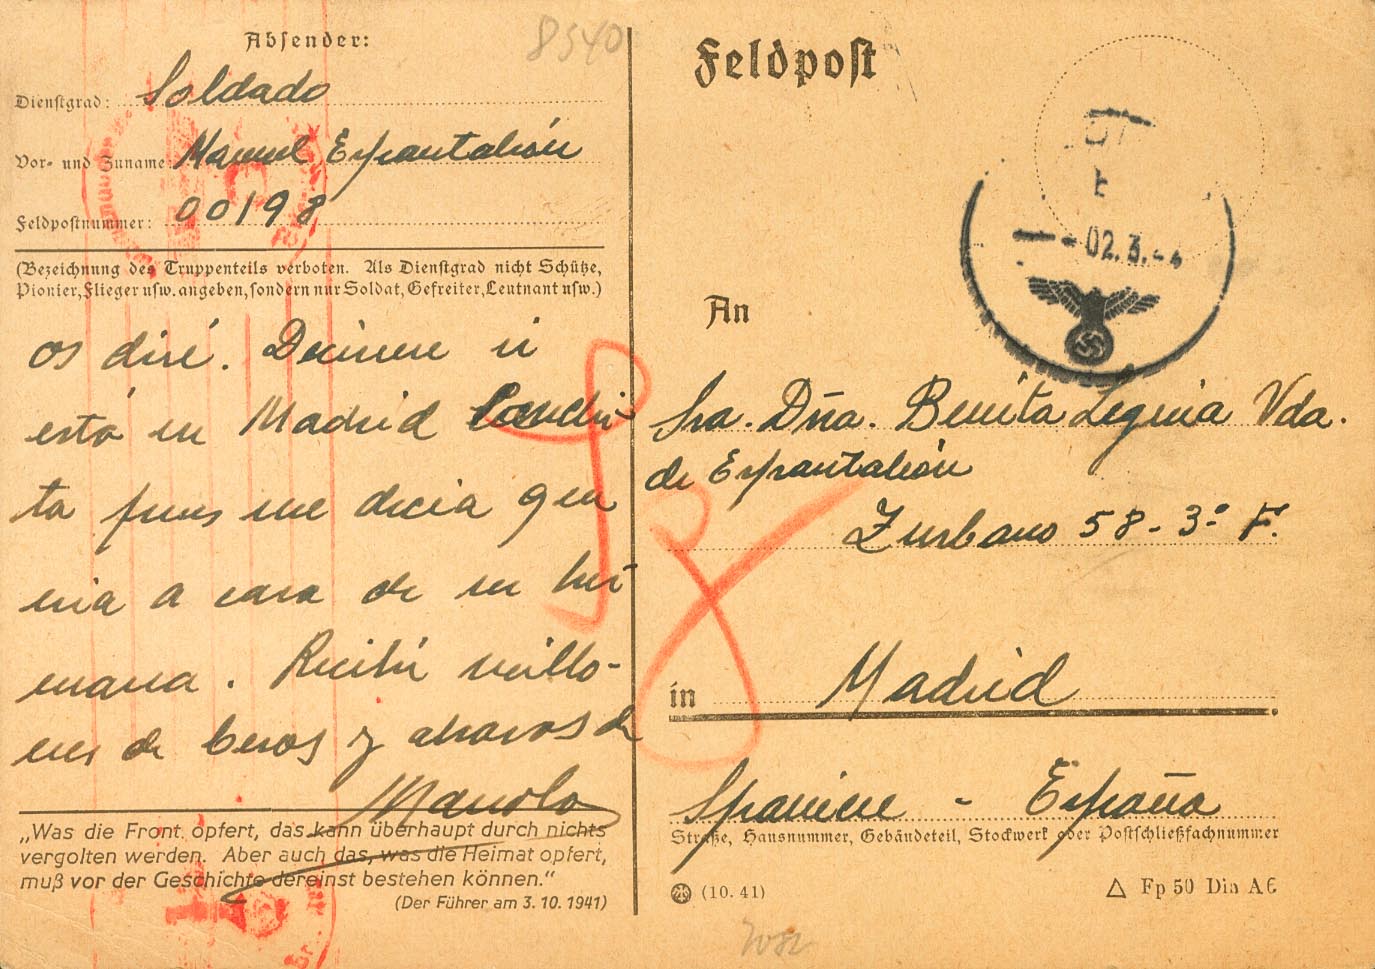 Absender:
8540
Dienstgrad: Soldado
Vor- und Zuname: Manuel Espantaleón
Feldpostnummer: 00198
(Bezeichnung des Truppenteils verboten. Als Dienstgrad nicht Schütze,
Pionier, Flieger usw. angeben, sondern nur Soldat, Gefreiter, Leutnant usw.)
os diré. Decirme si
está en Madrid Conchi
ta pues me decia que
iria a casa de su her-
mana. Recibir millo-
nes de besos y abrazos de
Manolo
„Was die Front opfert, das kann überhaupt durch nichts
vergolten werden. Aber auch das, was die Heimat opfert,
muß vor der Geschichte dereinst bestehen können."
(Der Führer am 3. 10. 1941)
Feldpost
02.3.-4
An
Sra. Dña. Benita Leguia Vda.
de Espantaleón
Zurbano 58-3º F.
in Madrid
Spanien - España
Straße, Hausnummer, Gebäudeteil, Stockwerk oder Postschließfachnummer
(10. 41)
△ Fp 50 Din A6